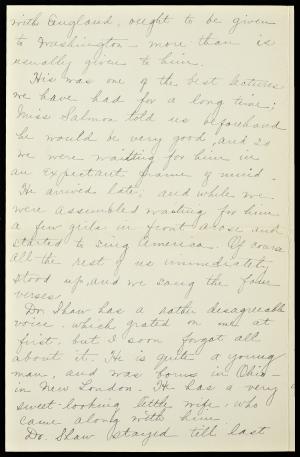 with England, ought to be given
to Washington - more than is
usually given to him.
His was one of the best lectures
we have had for a long time;
Miss Salmon told us beforehand
he would be very good, and so
we were waiting for him in
an expectant frame of mind.
He arrived late; and while we
were assembled waiting for him
a few girls in front arose and
started to sing America. Of course
all the rest of us immediately
stood up, and we sang the four
verses
Dr. Shaw has a rather disagreeable
voice, which grated on me at
first, but I soon forgot all
about it. He is quite a young
man, and was born in Ohio -
in New London. He has a very
sweet-looking little wife, who
came along with him
Dr. Shaw stayed till last